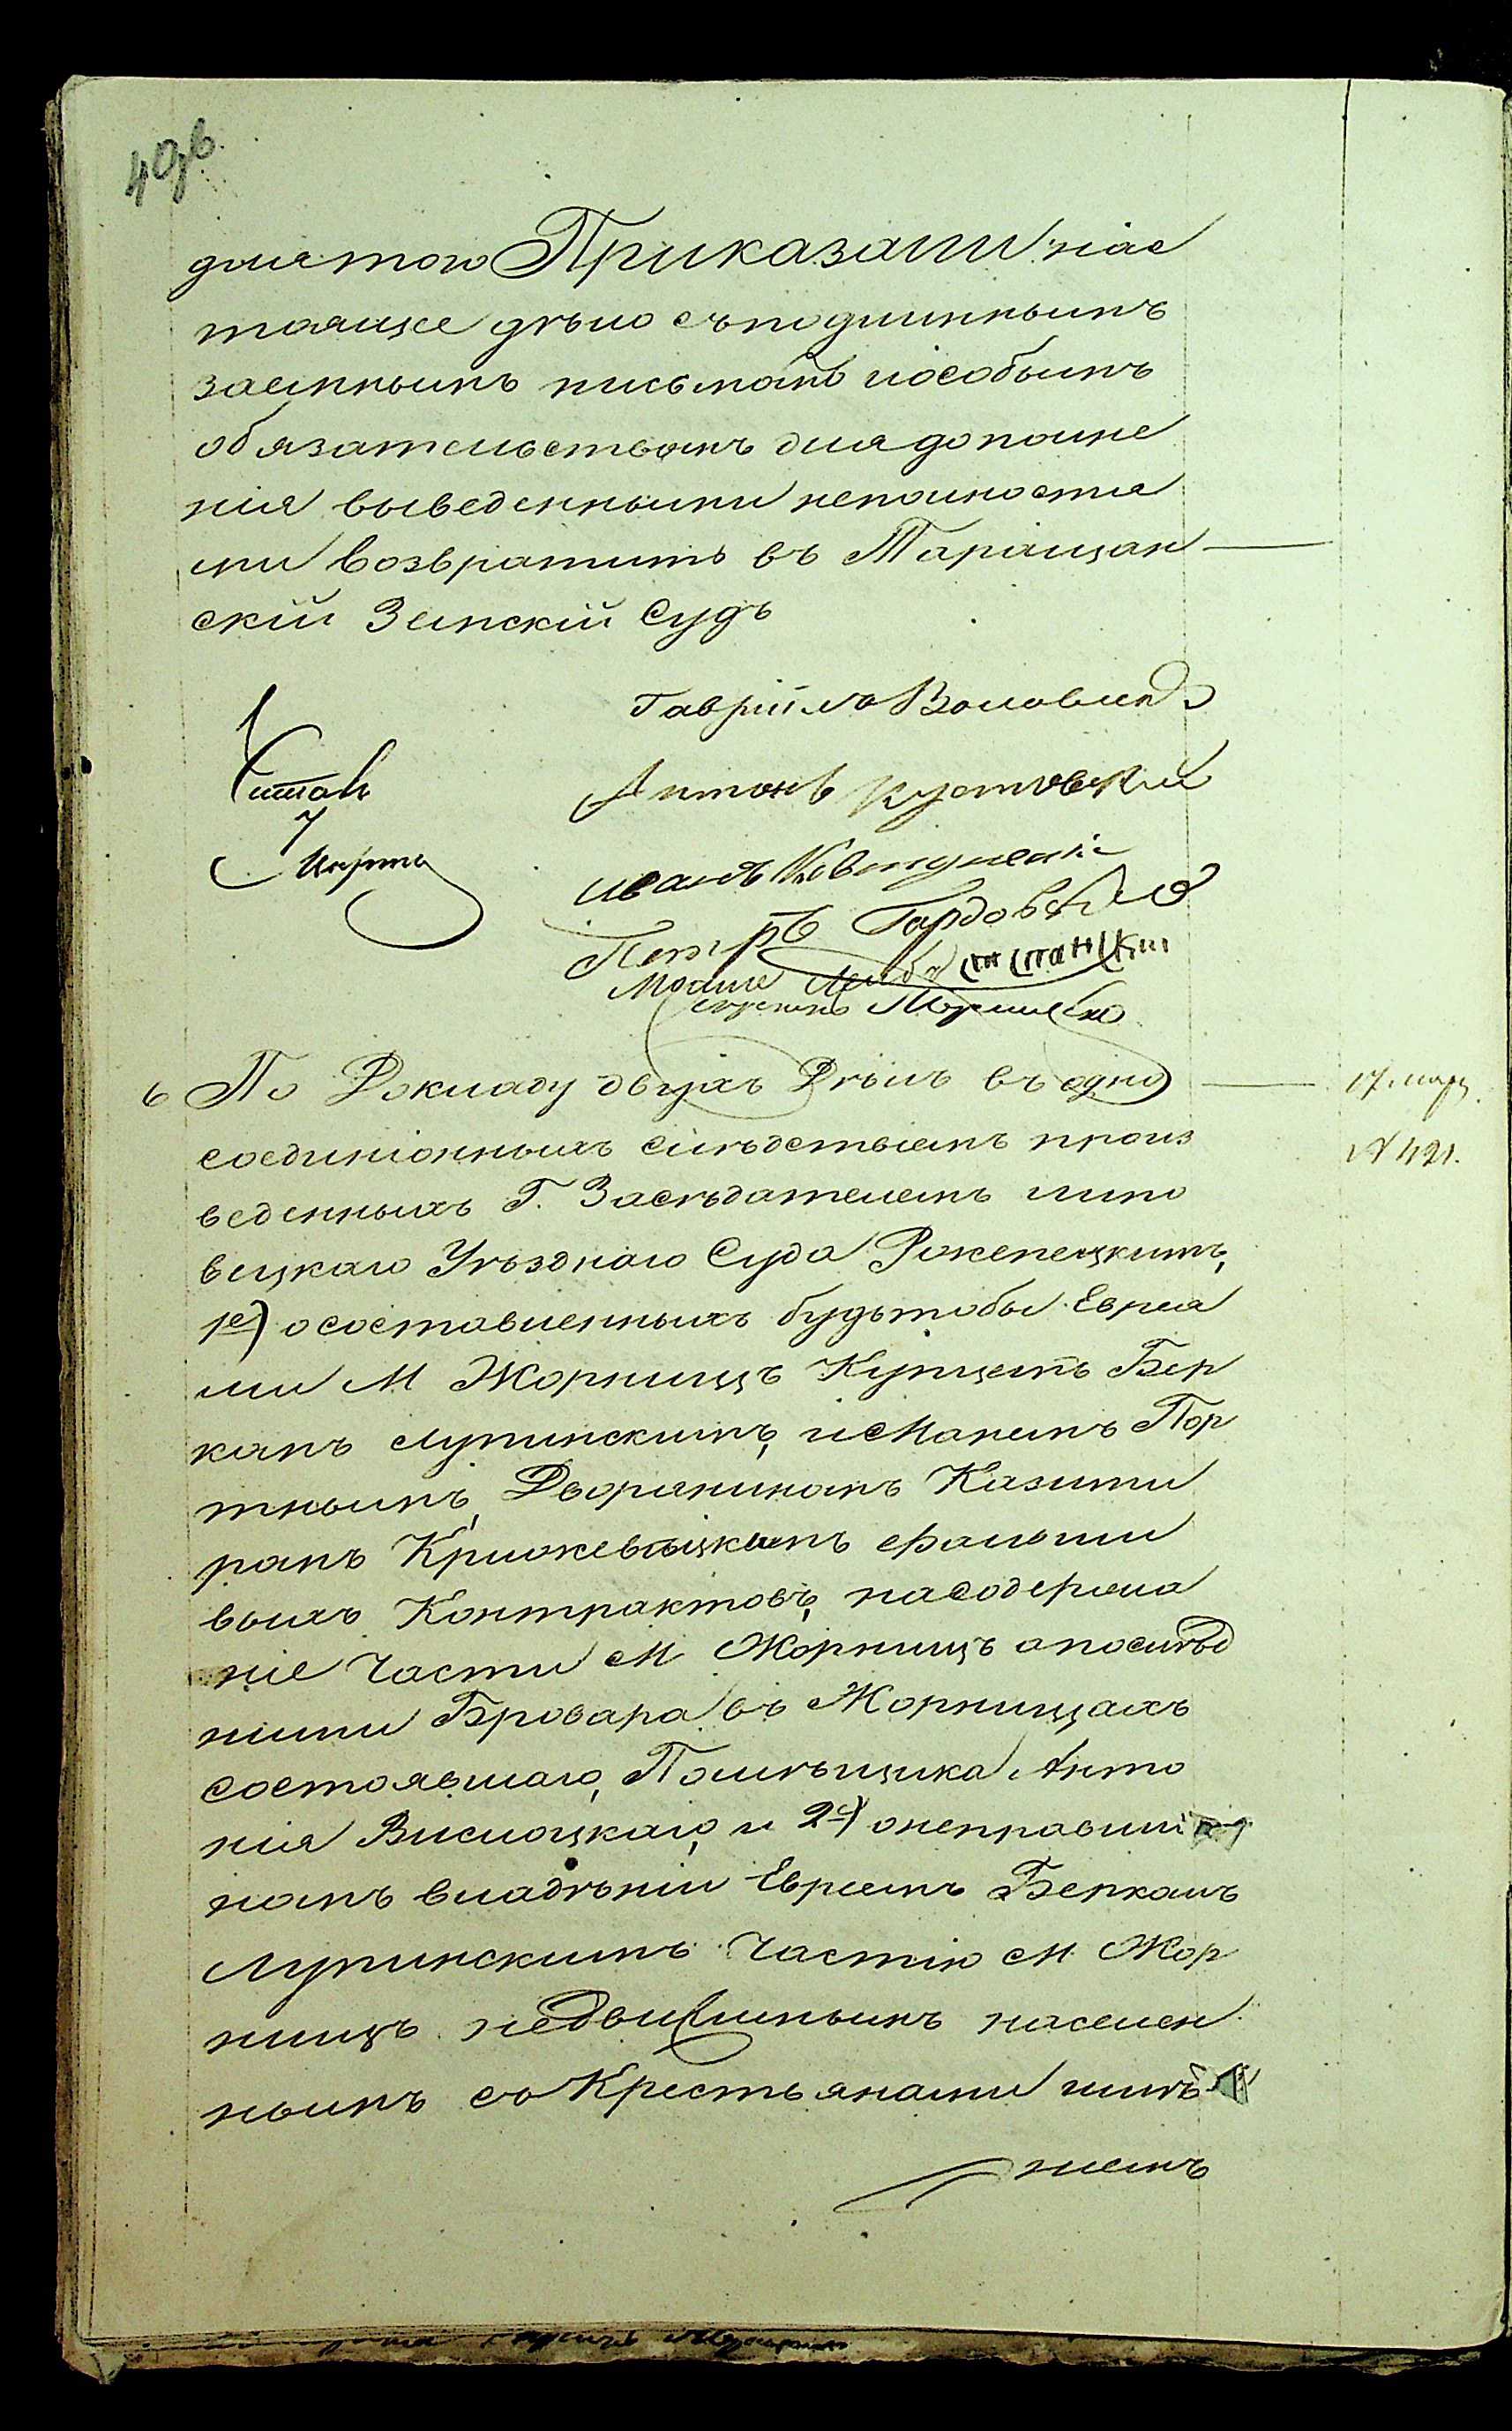 40об.
для того Приказали: нас
тоящее дѣло съ подлиннымъ
заемнымъ письмомъ и особымъ
обязательствомъ для дополне
нія выведенными неполностя
ми возвратить въ Таращан
скій Земскій Судъ
Гаврiило
Читалъ
7
Марта
Антонъ Кустовскій
Иванъ
Петръ Гардовскій
Мошие Лейба
6 По Докладу двухъ Дѣлъ въ одно
17. мар
N 421.
соединіонныхъ слѣдствіемъ произ
веденныхъ Г. Засѣдателемъ липо
вецкаго Уѣзднаго Суда Рокепецкимъ,
1е) о составленныхъ будьтобы Еврея
ми М Жорнищъ Купцемъ Бер
комъ Лупинскимъ, и Манемъ Пор
тнымъ, Дворяниномъ Казими
ромъ Крижевицкимъ фальши
выхъ Контрактовъ, на содержа
ніе Части М Жорнищъ а послѣд
ними Бровара въ Жорнищахъ
состоявшаго, Помѣщика Анто
нія Вислоцкаго, и 2е) о неправиль
номъ владѣніи Евреемъ Беркомъ
Лупинскимъ Частію М Жор
нищъ недвижимымъ населен
нымъ со Крестьянами имѣ
ніемъ